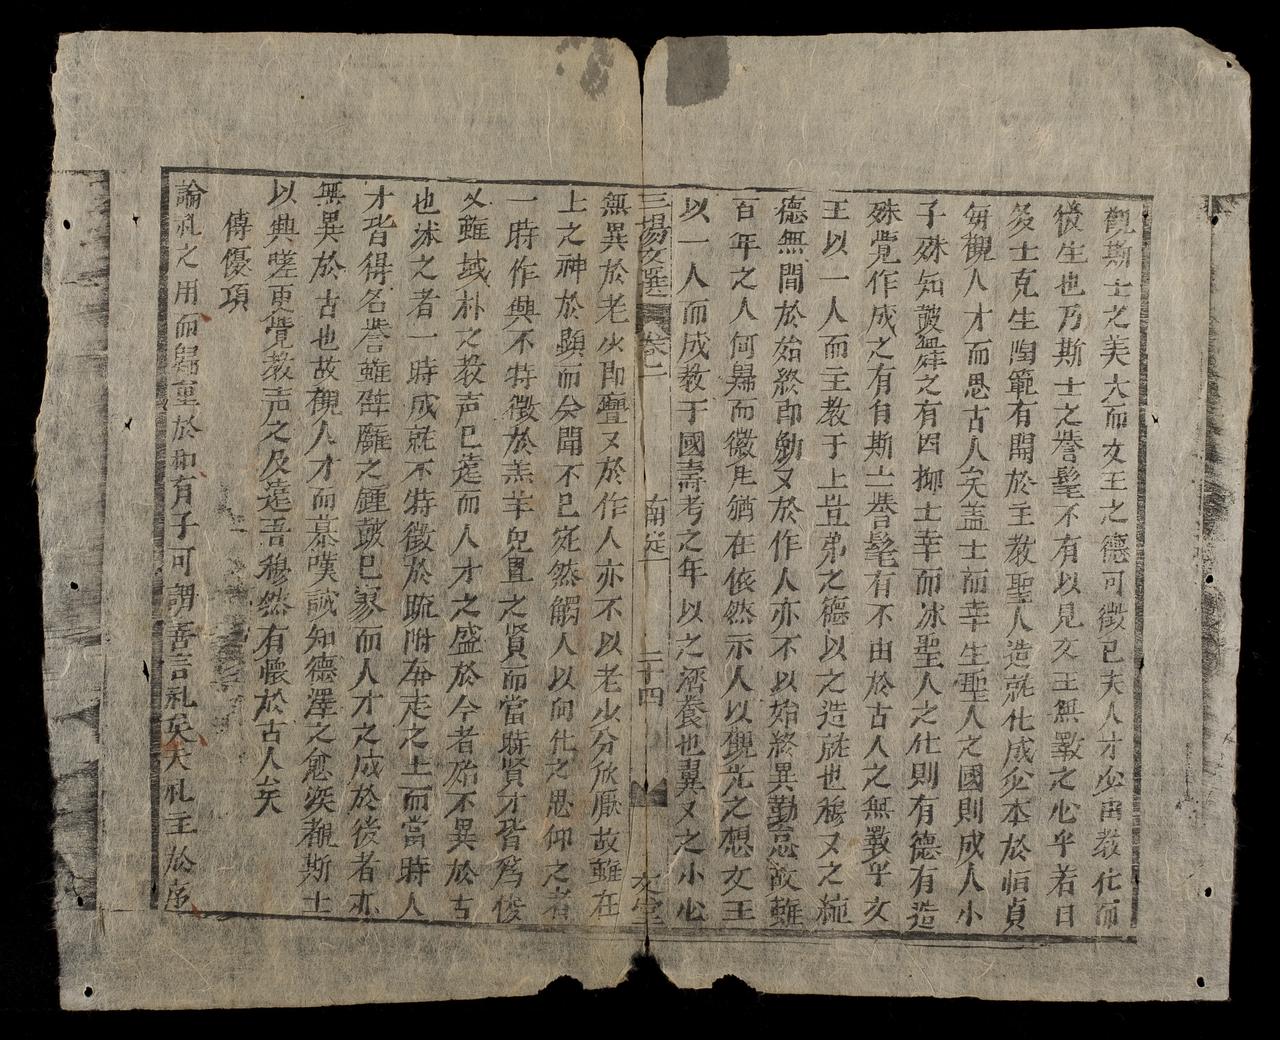 觀斯士之美大而文王之德可徵已夫人才必由教化而
後生也乃斯士之譽髦不有以見文王無斁之心乎若曰
多士克生陶範有開於主教聖人造就化成必本於恒貞
每觀人才而思古人矣盖士而幸生聖人之國則成人小
子殊知鼓舞之有因抑士幸而沐聖人之化則有德有造
殊覺作成之有自斯士譽髦有不由於古人之無斁乎文
王以一人而主教于上豈弟之德以之造就也穆又之純
德無間於始終即勉又於作人亦不以始終異勤怠故雖
百年之人何歸而徽猷猶在依然示人以觀光之想文王
以一人而成教于國壽考之年以之濟養也翼又之小心
三場文選 卷二 南定一 二十四 文堂
無異於老少即亹又於作人亦不以老少分欣厭故雖在
上之神於顯而令聞不已宛然觸人以向化之思仰之者
一時作興不特徵於羔羊兔罝之賢而當時賢才皆爲俊
乂雖棫朴之教声已遠而人才之盛於今者殆不異於古
也沐之者一時成就不特徵於疏附奔走之士而當時人
才皆得名譽雖辟廱之鍾鼓已邈而人才之成於後者亦
無異於古也故觀人才而慕嘆誠知德澤之愈深覩斯士
以興嗟更覺教声之及遠吾穆然有懷於古人矣
傳優項
論礼之用而歸重於和有子可謂善言礼矣夫礼主於序